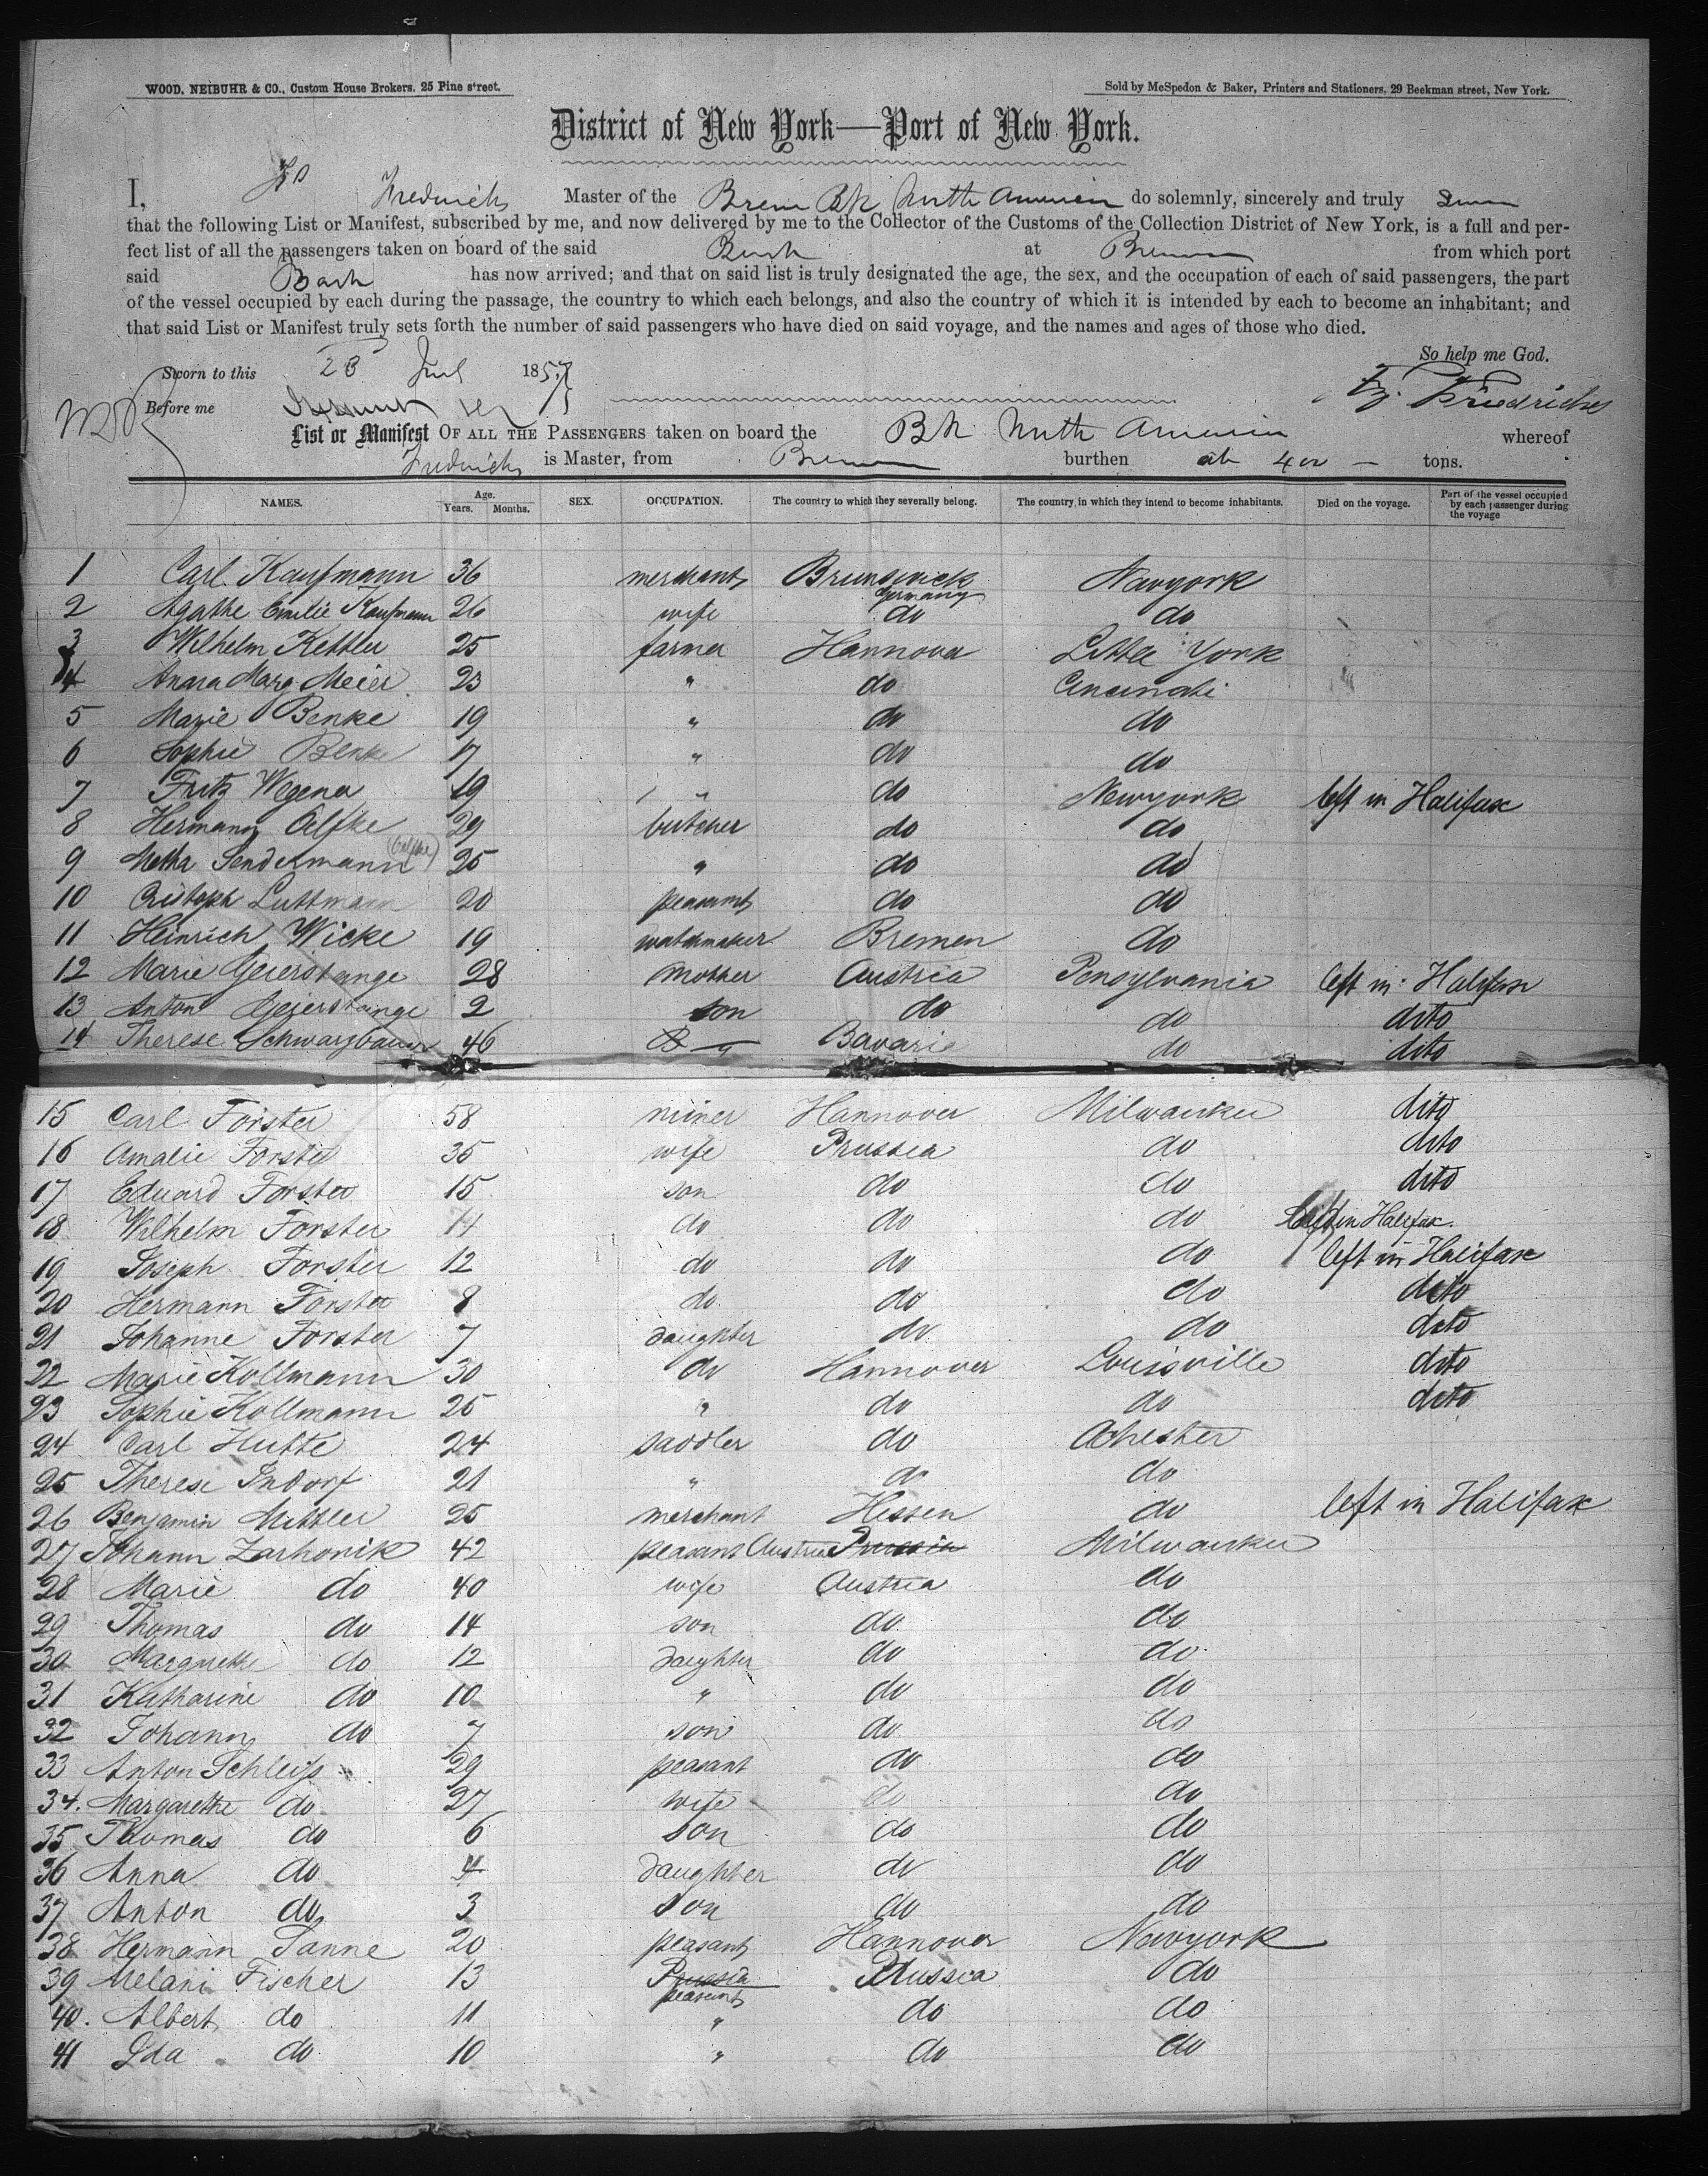 WOOD, NEIBUHR & CO., Custom House Brokers. 25 Pine street.
Sold by McSpedon & Baker, Printers and Stationers, 29 Beekman street, New York.
District of New York—Port of New York.
I, Fredrichs Master of the Brem Bk North America do solemnly, sincerely and truly
that the following List or Manifest, subscribed by me, and now delivered by me to the Collector of the Customs of the Collection District of New York, is a full and per-
fect list of all the passengers taken on board of the said Bark at Bremen from which port
said Bark has now arrived; and that on said list is truly designated the age, the sex, and the occupation of each of said passengers, the part
of the vessel occupied by each during the passage, the country to which each belongs, and also the country of which it is intended by each to become an inhabitant; and
that said List or Manifest truly sets forth the number of said passengers who have died on said voyage, and the names and ages of those who died.
So help me God.
Sworn to this 28 1857
Before me
Fz. Friedrichs
List or Manifest OF ALL THE PASSENGERS taken on board the Bk North America whereof
Fredrichs is Master, from Bremen burthen 400 — tons.
NAMES. Age. Years. Months. SEX. OCCUPATION. The country to which they severally belong. The country in which they intend to become inhabitants. Died on the voyage. Part of the vessel occupied by each passenger during the voyage
1 Carl Kaufmann 36 merchant Brunswick Germany Newyork
2 Agathe Emilie Kaufmann 26 wife do do
3 Wilhelm Kettler 25 farmer Hannover Little York
4 Anna Marg Meier 23 " do Cincinati
5 Marie Benke 19 " do do
6 Sophie Benke 17 " do do
7 Fritz Wegener 19 " do Newyork left in Halifax
8 Hermann Oelfke 29 butcher do do
9 Metha Sendermann (Oelfke) 25 " do do
10 Cristoph Luttmann 20 peasant do do
11 Heinrich Wicke 19 watchmaker Bremen do
12 Marie Geierstange 28 mother Austria Pensylvania left in Halifax
13 Anton Geierstange 2 son do do dito
14 Therese Schwarzbauer 46 " Bavaria do dito
15 Carl Forster 58 miner Hannover Milwaukee dito
16 Amalie Forster 35 wife Prussia do dito
17 Eduard Forster 15 son do do dito
18 Wilhelm Forster 14 do do do left in Halifax.
19 Joseph Forster 12 do do do left in Halifax
20 Hermann Forster 8 do do do dito
21 Johanne Forster 7 daughter do do dito
22 Marie Kollmann 30 do Hannover Louisville dito
23 Sophie Kollmann 25 " do do dito
24 Carl Hutte 24 saddler do Chester
25 Therese Indorf 21 " do do
26 Benjamin Mittler 25 merchant Hessen do left in Halifax
27 Johann Zarhonik 42 peasant Austria Prussia Milwaukee
28 Marie do 40 wife Austria do
29 Thomas do 14 son do do
30 Margarethe do 12 daughter do do
31 Katharine do 10 " do do
32 Johann do 7 son do do
33 Anton Schleiss 29 peasant do do
34. Margarethe do 27 wife do do
35 Thomas do 6 son do do
36 Anna do 4 daughter do do
37 Anton do 3 son do do
38 Hermann Sanne 20 peasant Hannover Newyork
39 Melani Fischer 13 Prussia peasant Prussia do
40. Albert do 11 " do do
41 Ida do 10 " do do